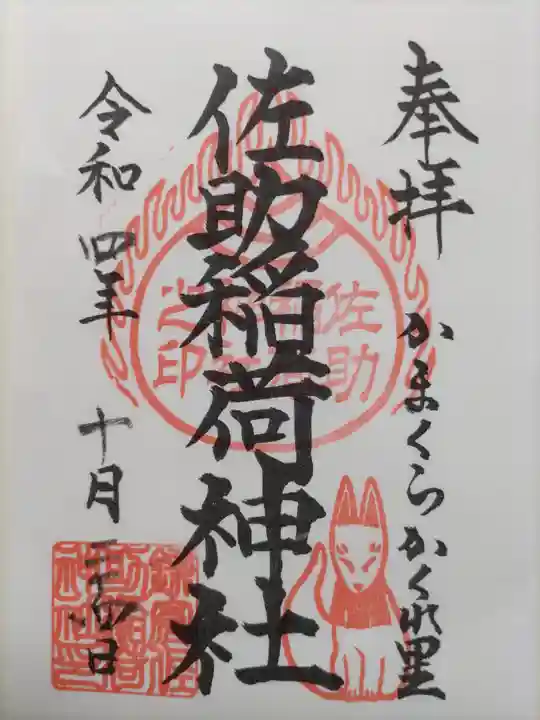 奉拝
かまくらかくれ里
佐助稲荷神社
佐助稲荷神社之印
令和四年十月二十四日